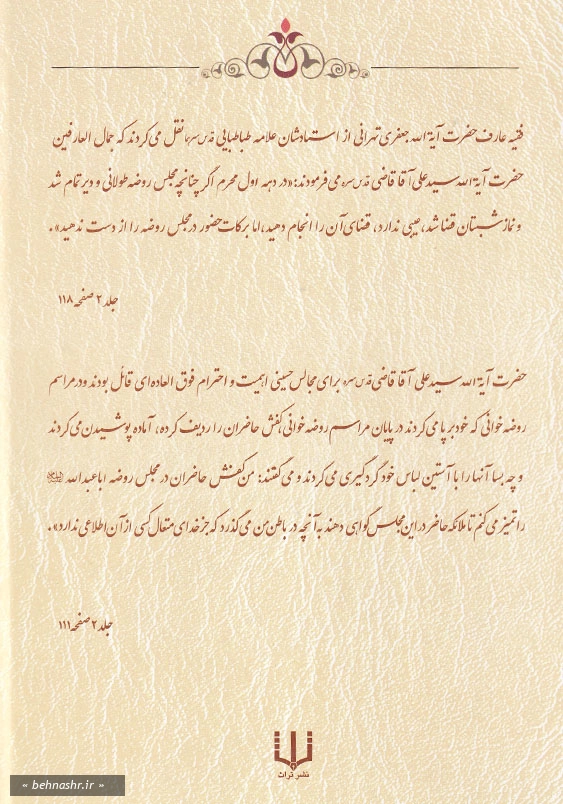 فقیه عارف حضرت آیة الله جعفری تهرانی از استادشان علامه طباطبایی قدس‌سره نقل می‌کردند که جمال العارفین
حضرت آیة الله سید علی آقا قاضی قدس‌سره می‌فرمودند: «در دهه اول محرم اگر چنانچه مجلس روضه طولانی و دیر تمام شد
و نماز شبتان قضا شد، عیبی ندارد، قضای آن را انجام دهید، اما برکات حضور در مجلس روضه را از دست ندهید».
جلد ۲ صفحه ۱۱۸
حضرت آیة الله سید علی آقا قاضی قدس‌سره برای مجالس حسینی اهمیت و احترام فوق العاده‌ای قائل بودند و در مراسم
روضه خوانی که خود برپا می‌کردند در پایان مراسم روضه خوانی، کفش حاضران را ردیف کرده، آماده پوشیدن می‌کردند
و چه بسا آنها را با آستین لباس خود گردگیری می‌کردند و می‌گفتند: من کفش حاضران در مجلس روضه اباعبدالله
را تمیز می‌کنم تا ملائکه حاضر در این مجلس گواهی دهند به آنچه در باطن من می‌گذرد که جز خدای متعال کسی از آن اطلاعی ندارد».
جلد ۲ صفحه ۱۱۱
نشر تراث
« behnashr.ir »